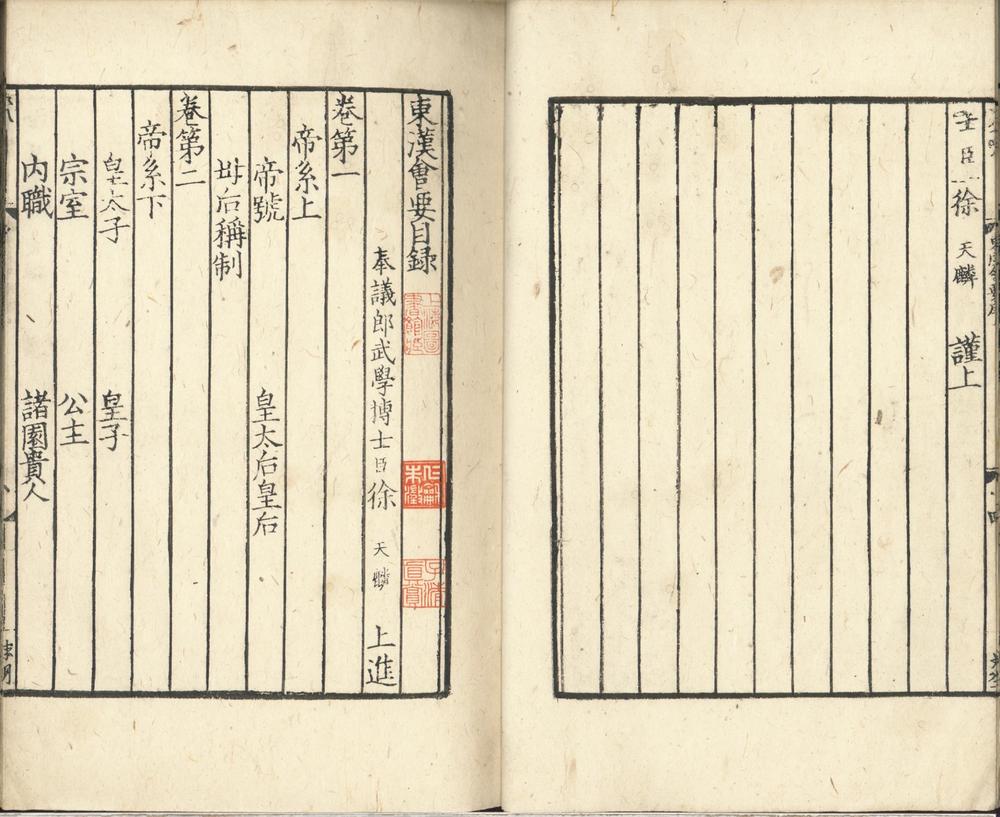 士臣徐天麟謹上
東漢會要目録
奉議郎武學博士臣徐天麟上進
卷第一
帝系上
帝號 皇太后皇后
母后稱制
卷第二
帝系下
皇太子 皇子
宗室 公主
内職 諸園貴人